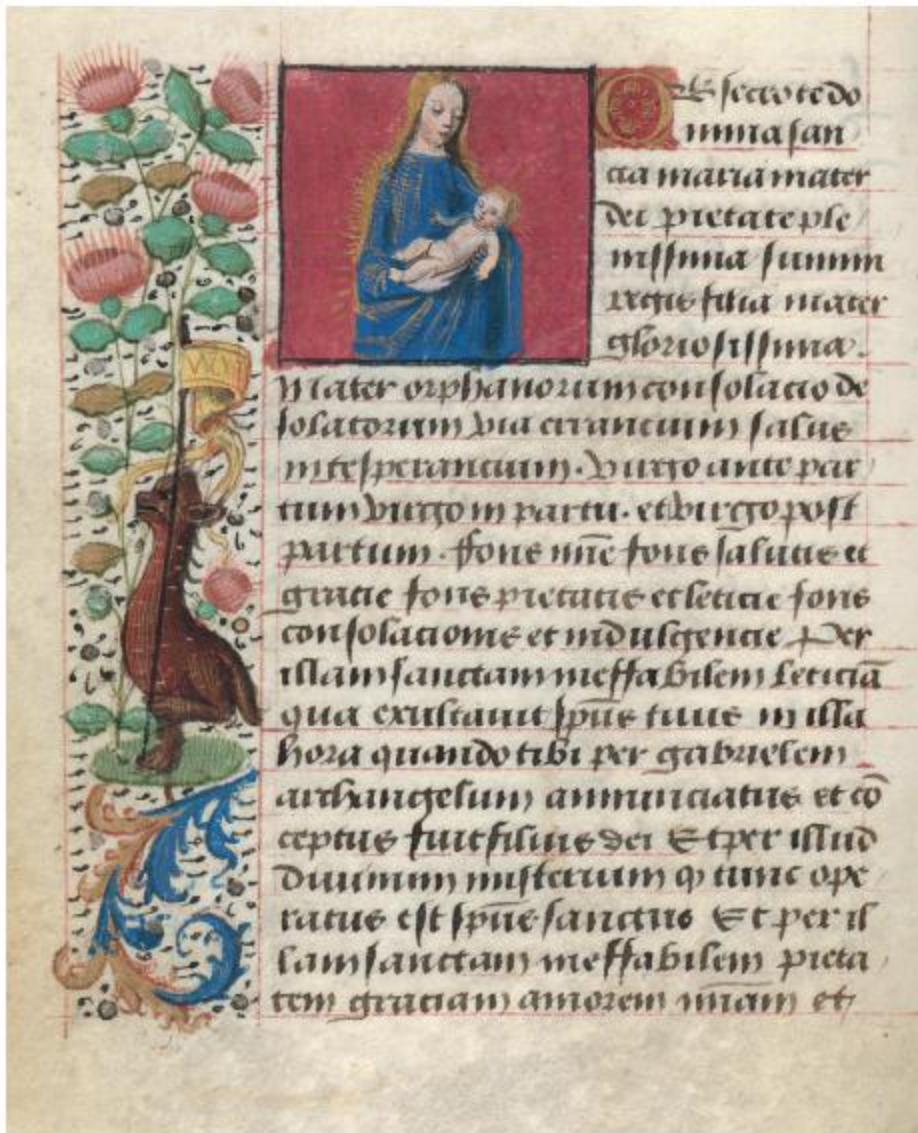 OBsecro te do
mina san
cta maria mater
dei pietate ple
nissima summi
regis filia mater
gloriosissima.
Mater orphanorum consolacio de
solatorum via errancium salus
in te sperancium. Virgo ante par
tum virgo in partu. et virgo post
partum. ffons mīe fons salutis et
gracie fons pietatis et leticie fons
consolacionis et indulgencie Per
illam sanctam ineffabilem leticiā
qua exultauit spūs tuus in illa
hora quando tibi per gabrielem
archangelum annunciatus et cō
ceptus fuit filius dei Et per illud
diuinum misterium q tunc ope
ratus est spūs sanctus Et per il
lam sanctam ineffabilem pieta
tem graciam amorem mīam et